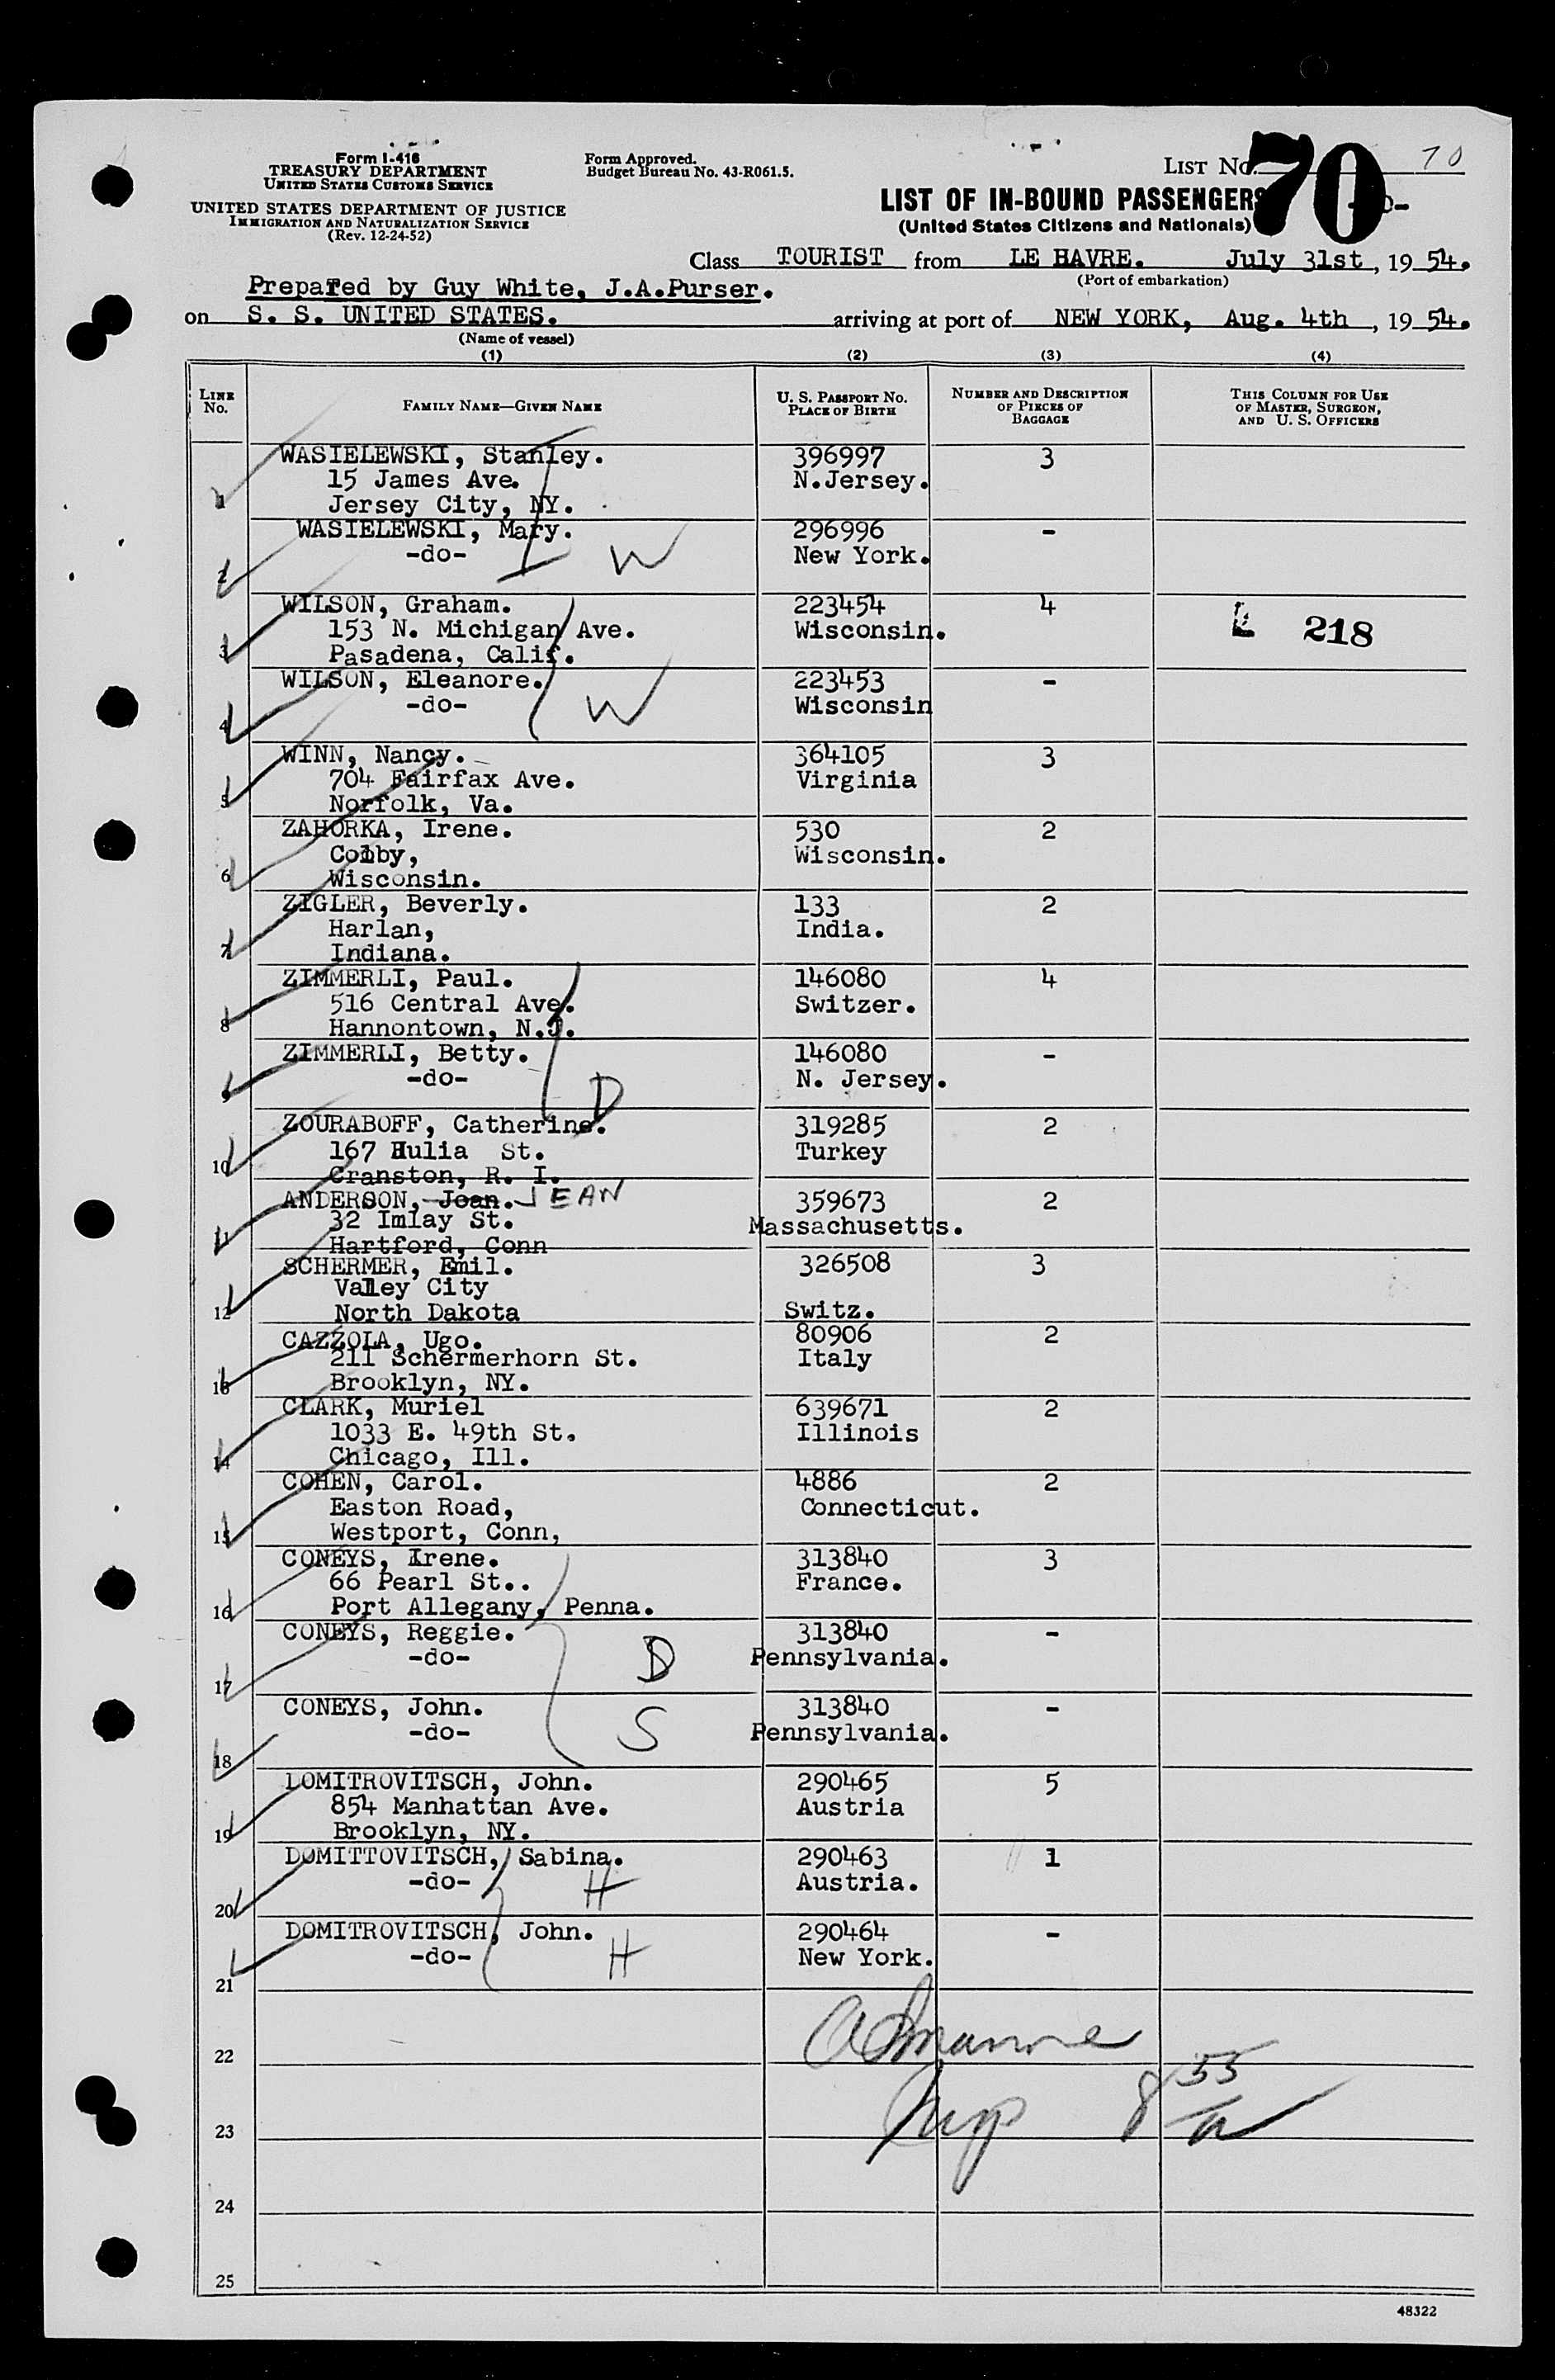 Form I-416
TREASURY DEPARTMENT
UNITED STATES CUSTOMS SERVICE
UNITED STATES DEPARTMENT OF JUSTICE
IMMIGRATION AND NATURALIZATION SERVICE
(Rev. 12-24-52)
Form Approved.
Budget Bureau No. 43-R061.5.
LIST No. 70
70
LIST OF IN-BOUND PASSENGERS
(United States Citizens and Nationals)
Class TOURIST from LE HAVRE. July 31st, 19 54.
(Port of embarkation)
Prepared by Guy White, J.A.Purser.
on S. S. UNITED STATES. arriving at port of NEW YORK, Aug. 4th, 19 54.
(Name of vessel)
(1) (2) (3) (4)
LINE No. FAMILY NAME—GIVEN NAME U. S. PASSPORT NO. PLACE OF BIRTH NUMBER AND DESCRIPTION OF PIECES OF BAGGAGE THIS COLUMN FOR USE OF MASTER, SURGEON, AND U. S. OFFICERS
WASIELEWSKI, Stanley. 396997 3
15 James Ave. N.Jersey.
1 Jersey City, NY.
WASIELEWSKI, Mary. 296996 -
-do- W New York.
2
WILSON, Graham. 223454 4
153 N. Michigan Ave. Wisconsin. 218
3 Pasadena, Calif.
WILSON, Eleanore. 223453 -
-do- W Wisconsin
4
WINN, Nancy. 364105 3
704 Fairfax Ave. Virginia
5 Norfolk, Va.
ZAHORKA, Irene. 530 2
Colby, Wisconsin.
6 Wisconsin.
ZIGLER, Beverly. 133 2
Harlan, India.
7 Indiana.
ZIMMERLI, Paul. 146080 4
516 Central Ave. Switzer.
8 Hannontown, N.J.
ZIMMERLI, Betty. 146080 -
-do- D N. Jersey.
9
ZOURABOFF, Catherine. 319285 2
167 Hulia St. Turkey
10 Cranston, R. I.
ANDERSON, Joan. JEAN 359673 2
32 Imlay St. Massachusetts.
11 Hartford, Conn
SCHERMER, Emil. 326508 3
Valley City
12 North Dakota Switz.
CAZZOLA, Ugo. 80906 2
211 Schermerhorn St. Italy
13 Brooklyn, NY.
CLARK, Muriel 639671 2
1033 E. 49th St. Illinois
14 Chicago, Ill.
COHEN, Carol. 4886 2
Easton Road, Connecticut.
15 Westport, Conn,
CONEYS, Irene. 313840 3
66 Pearl St.. France.
16 Port Allegany, Penna.
CONEYS, Reggie. 313840 -
-do- D Pennsylvania.
17
CONEYS, John. 313840 -
-do- S Pennsylvania.
18
DOMITROVITSCH, John. 290465 5
854 Manhattan Ave. Austria
19 Brooklyn, NY.
DOMITTOVITSCH, Sabina. 290463 1
-do- H Austria.
20
DOMITROVITSCH, John. 290464 -
-do- H New York.
21
22
23
8 55
24
25
48322